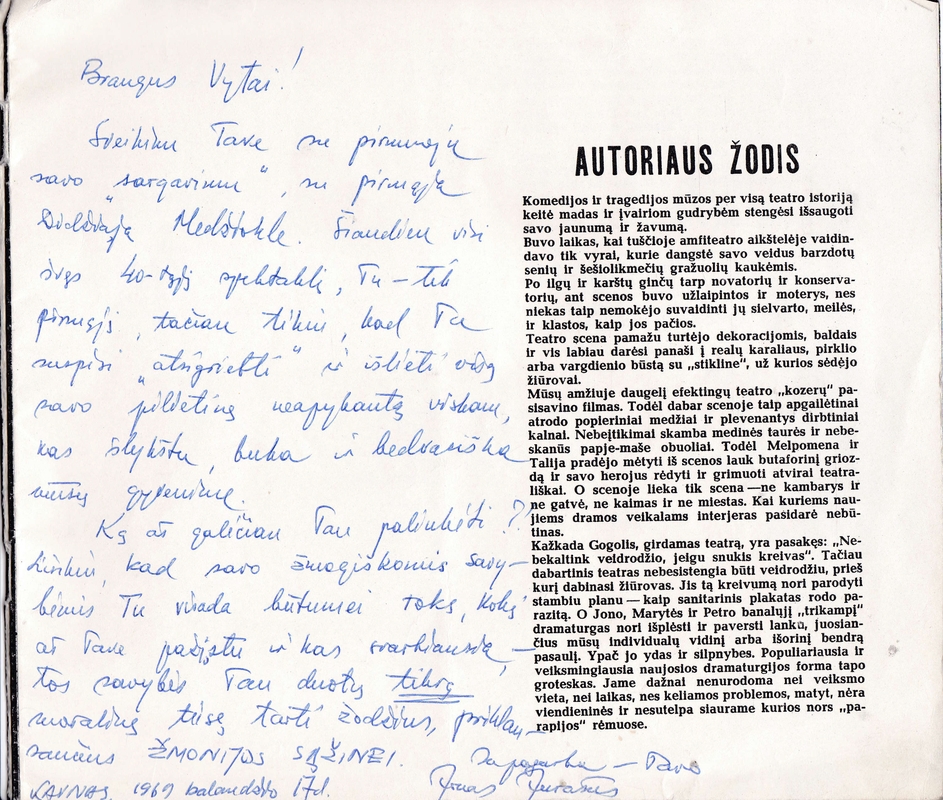 Brangus Vytai!
Sveikinu Tave su pirmuoju
savo „sargavimu“, su pirmąja
Didžiąja Medžiokle. Šiandien visi
švęs 40-tąjį spektaklį, Tu – tik
pirmąjį, tačiau tikiu, kad Tu
suspėsi „atsigriebti“ ir išlieti visą
savo pilietinę neapykantą viskam,
kas šlykštu, buka ir bedvasiška
mūsų gyvenime.
Ką aš galėčiau Tau palinkėti??
Linkiu, kad savo žmogiškomis savy-
bėmis Tu visada būtumei toks, kokį
aš Tave pažįstu ir kas svarbiausia, –
tos savybės Tau duotų tikrą
moralinę teisę tarti žodžius, priklau-
sančius ŽMONIJOS SĄŽINEI.
Su pagarba – Tavo
Jonas Jurašas
KAUNAS, 1969 balandžio 17d.
AUTORIAUS ŽODIS
Komedijos ir tragedijos mūzos per visą teatro istoriją
keitė madas ir įvairiom gudrybėm stengėsi išsaugoti
savo jaunumą ir žavumą.
Buvo laikas, kai tuščioje amfiteatro aikštelėje vaidin-
davo tik vyrai, kurie dangstė savo veidus barzdotų
senių ir šešiolikmečių gražuolių kaukėmis.
Po ilgų ir karštų ginčų tarp novatorių ir konserva-
torių, ant scenos buvo užlaipintos ir moterys, nes
niekas taip nemokėjo suvaidinti jų sielvarto, meilės,
ir klastos, kaip jos pačios.
Teatro scena pamažu turtėjo dekoracijomis, baldais
ir vis labiau darėsi panaši į realų karaliaus, pirklio
arba vargdienio būstą su „stikline“, už kurios sėdėjo
žiūrovai.
Mūsų amžiuje daugelį efektingų teatro „kozerų“ pa-
sisavino filmas. Todėl dabar scenoje taip apgailėtinai
atrodo popieriniai medžiai ir plevenantys dirbtiniai
kalnai. Nebeįtikimai skamba medinės taurės ir nebe-
skanūs papje-maše obuoliai. Todėl Melpomena ir
Talija pradėjo mėtyti iš scenos lauk butaforinį grioz-
dą ir savo herojus rėdyti ir grimuoti atvirai teatra-
liškai. O scenoje lieka tik scena — ne kambarys ir
ne gatvė, ne kaimas ir ne miestas. Kai kuriems nau-
jiems dramos veikalams interjeras pasidarė nebū-
tinas.
Kažkada Gogolis, girdamas teatrą, yra pasakęs: „Ne-
bekaltink veidrodžio, jeigu snukis kreivas“. Tačiau
dabartinis teatras nebesistengia būti veidrodžiu, prieš
kurį dabinasi žiūrovas. Jis tą kreivumą nori parodyti
stambiu planu — kaip sanitarinis plakatas rodo pa-
razitą. O Jono, Marytės ir Petro banalųjį „trikampį“
dramaturgas nori išplėsti ir paversti lanku, juosian-
čius mūsų individualų vidinį arba išorinį bendrą
pasaulį. Ypač jo ydas ir silpnybes. Populiariausia ir
veiksmingiausia naujosios dramaturgijos forma tapo
groteskas. Jame dažnai nenurodoma nei veiksmo
vieta, nei laikas, nes keliamos problemos, matyt, nėra
viendieninės ir nesutelpa siaurame kurios nors „pa-
rapijos“ rėmuose.